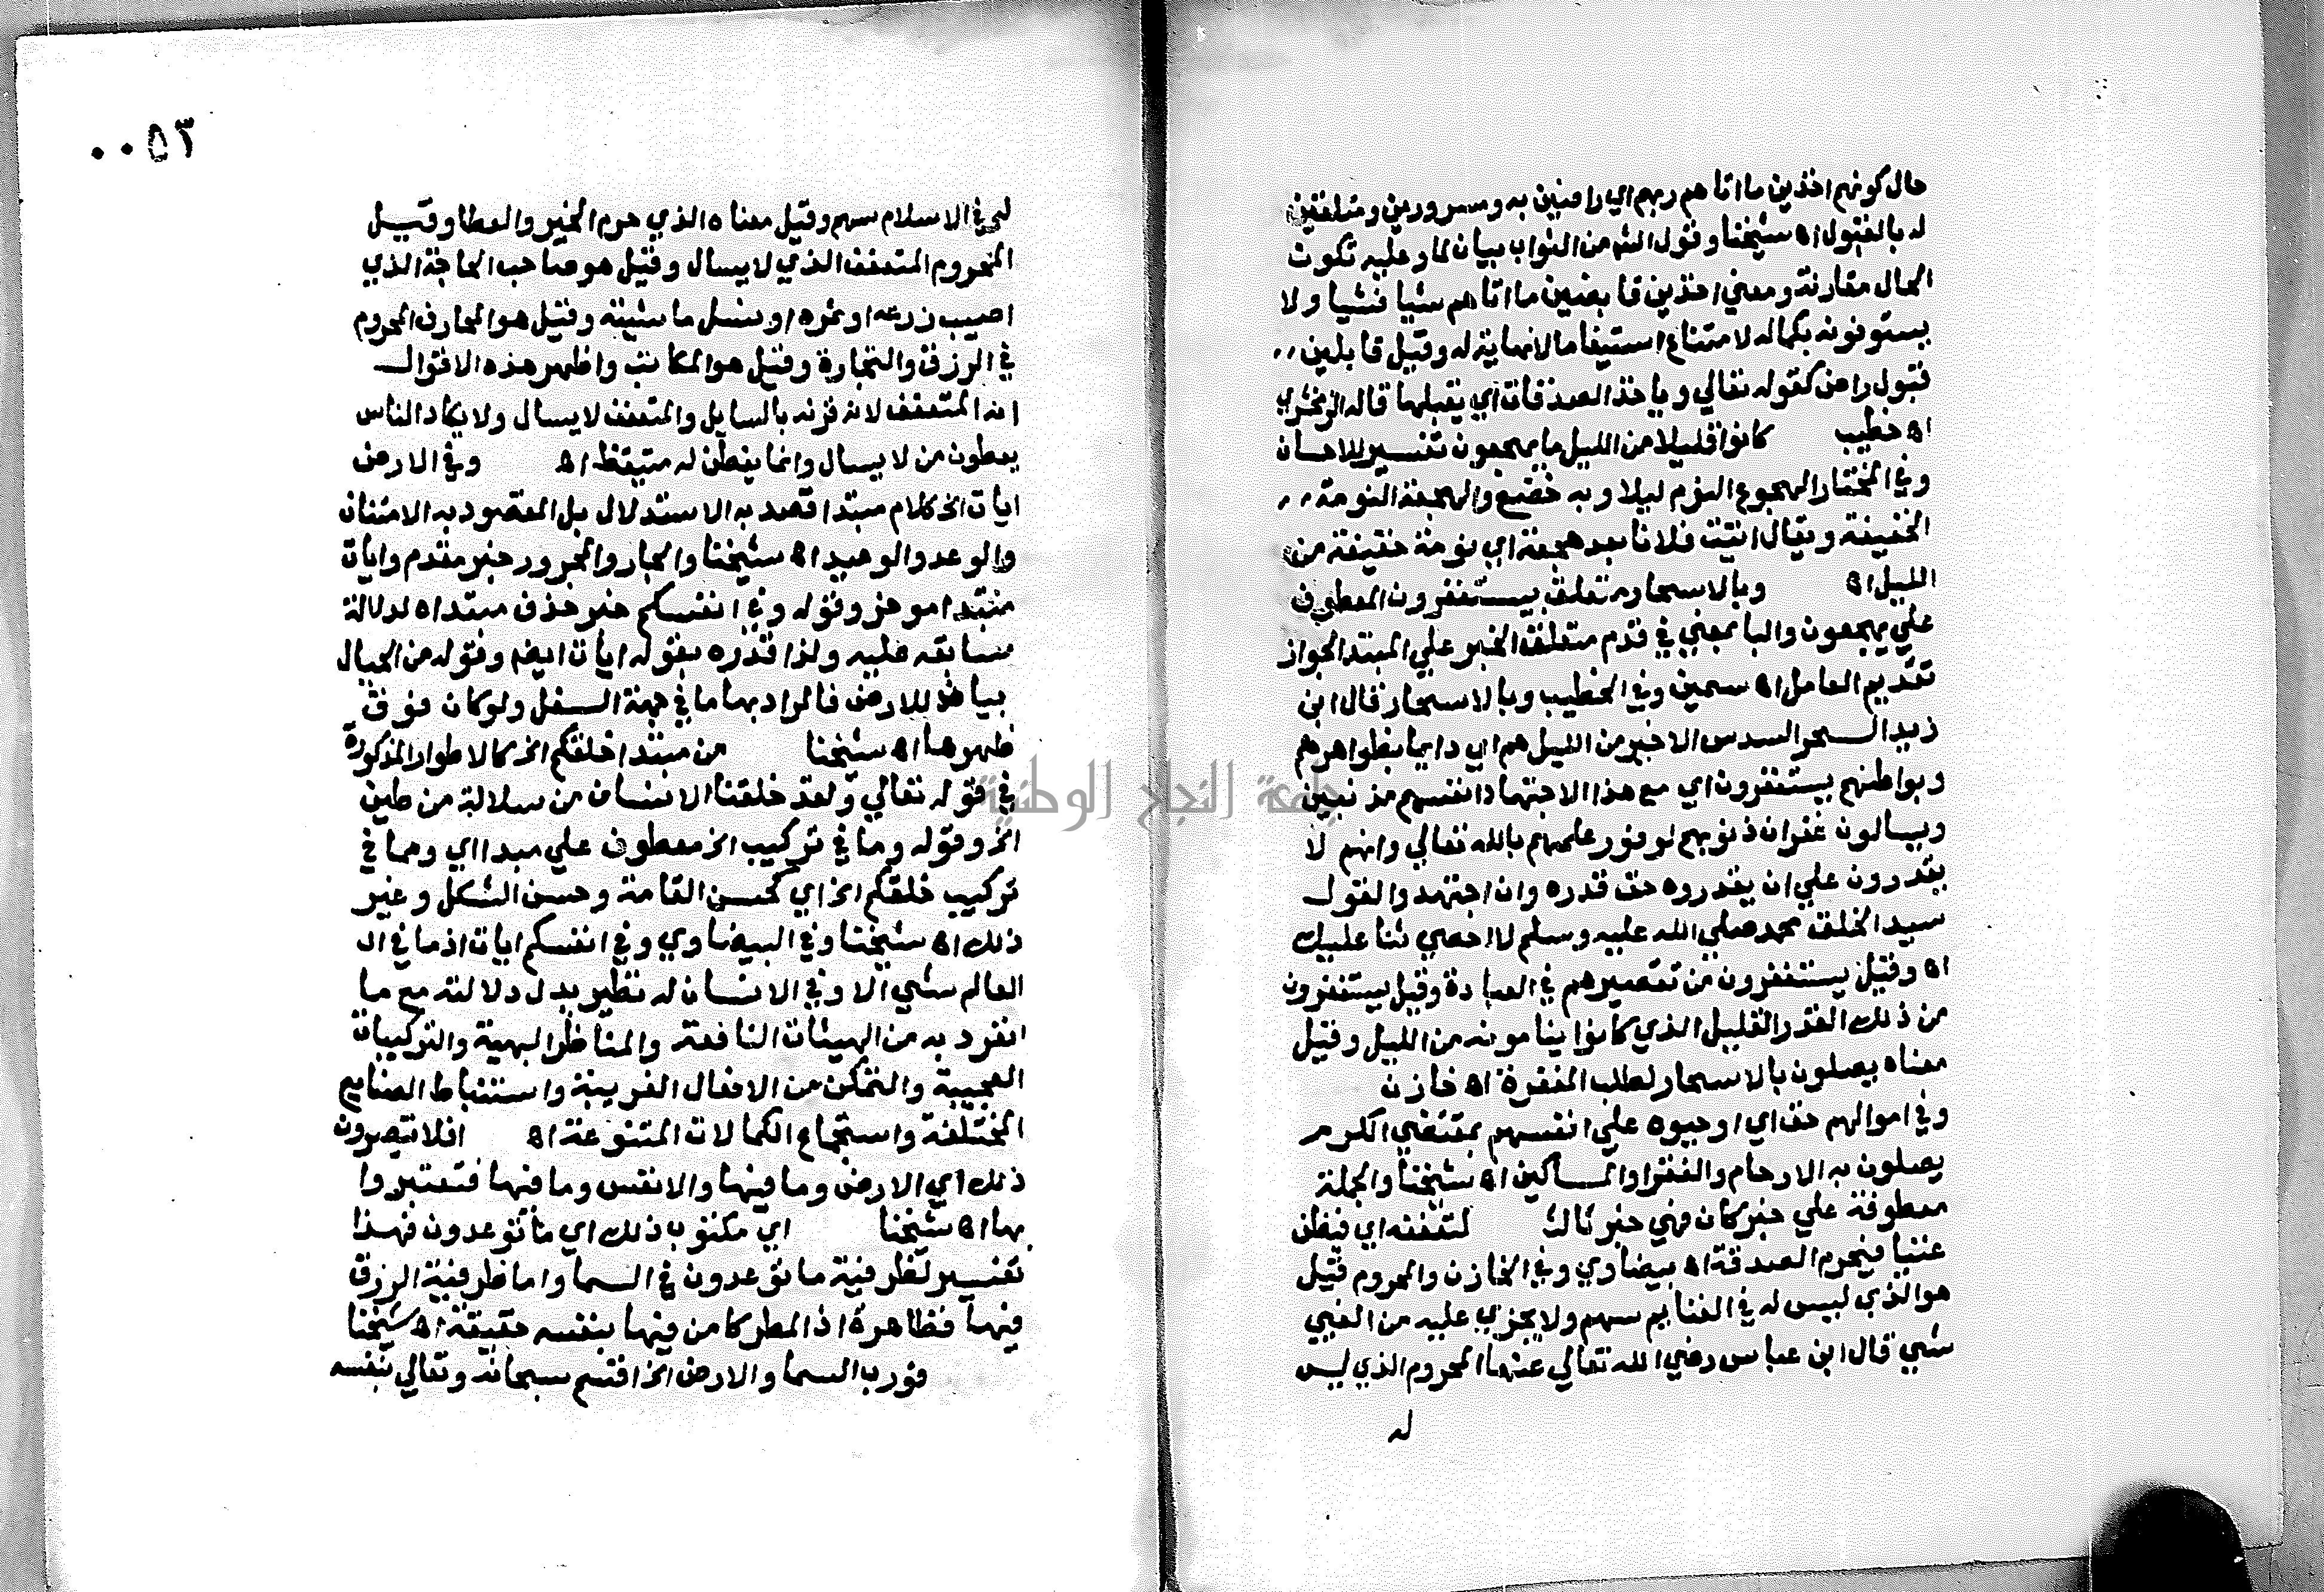 حال كونهم اخذين ما اتاهم ربهم اي راضين به ومسرورين ومتلقين
له بالقبول اه شيخنا وقوله الثم من الثواب بيان لما وعليه تكون
الحال مقارنة ومعني اخذين قابضين ما اتاهم شيا فشيا ولا
يستوفونه بكماله لامتناع استيفا مالانهاية له وقيل قابلين
قبول راض كقوله تعالي وياخذ الصدقات اي يقبلها قاله الزمخشري
اه خطيب كانوا قليلا من الليل ما يهجعون تفسير للاحسان
وفي المختار الهجوع النوم ليلا وبه خضع والهجعة النومة
الخفيفة ويقال اتيت فلانا بعد هجعة اي نومة خفيفة من
الليل اه وبالاسحار متعلق بيستغفرون المعطوف
علي يهجعون والبا بمعني في قدم متعلق الخبر علي المبتدا لجواز
تقديم العامل اه سمين وفي الخطيب وبالاسحار قال ابن
زيد السحر السدس الاخير من الليل هم اي دايما بظواهرهم
وبواطنهم يستغفرون اي مع هذا الاجتهاد انفسهم مذنبين
ويسالون غفران ذنوبهم لوفور علمهم بالله تعالي وانهم لا
يقدرون علي ان يقدروه حق قدره وان اجتهدوا لقول
سيد الخلق محمد صلي الله عليه وسلم لا احصي ثنا عليك
اه وقيل يستغفرون من تقصيرهم في العبادة وقيل يستغفرون
من ذلك القدر القليل الذي كانوا ينامونه من الليل وقيل
معناه يصلون بالاسحار لطلب المغفرة اه خازن
وفي اموالهم حق اي اوجبوه علي انفسهم بمقتضي الكرم
يصلون به الارحام والفقرا والمساكين اه شيخنا والجملة
معطوفة علي خبر كان فهي خبر ثالث لتعففه اي فيظن
غنيا فيحرم الصدقة اه بيضاوي وفي الخازن والمحروم قيل
هو الذي ليس له في الغنايم سهم ولا يجري عليه من الفيي
شيي قال ابن عباس رضي الله تعالي عنهما المحروم الذي ليس
له
٠٠٥٣
له في الاسلام سهم وقيل معناه الذي حرم الخير والعطا وقيل
المحروم المتعفف الذي لا يسال وقيل هو صاحب الحاجة الذي
اصيب زرعه او ثمره او نسل ماشيته وقيل هو المحارف المحروم
في الرزق والتجارة وقيل هو المكاتب واظهر هذه الاقوال
انه المتعفف لانه قرنه بالسايل والمتعفف لا يسال ولا يكاد الناس
يعطون من لا يسال وانما يفطن له متيقظ اه وفي الارض
ايات الخ كلام مبتدا قصد به الاستدلال بل المقصود به الامتنان
والوعد والوعيد اه شيخنا والجار والمجرور خبر مقدم وايات
مبتدا موخر وقوله وفي انفسكم خبر حذف مبتداه لدلالة
سابقه عليه ولذا قدره بقوله ايات ايضا وقوله من الجبال
بيان للارض فالمراد بها ما في جهة السفل ولو كان فوق
ظهرها اه شيخنا من مبتدا خلقكم الخ كالاطوار المذكورة
في قوله تعالي ولقد خلقنا الانسان من سلالة من طين
الخ وقوله وما في تركيب الخ معطوف علي مبدا اي ومما في
تركيب خلقكم الخ اي كحسن القامة وحسن الشكل وغير
ذلك اه شيخنا وفي البيضاوي وفي انفسكم ايات اذ ما في ال
العالم شيي الا وفي الانسان له نظير يدل دلالته مع ما
انفرد به من الهيئات النافعة والمناظر البهية والتركيبات
العجيبة والتمكن من الافعال الغريبة واستنباط الصنايع
المختلفة واستجماع الكمالات المتنوعة اه افلا تبصرون
ذلك اي الارض وما فيها والانفس وما فيها فتعتبروا
بها اه شيخنا اي مكتوب ذلك اي ما توعدون فهذا
تفسير لظرفية ما توعدون في السما واما ظرفية الرزق
فيها فظاهرة اذ المطر كامن فيها بنفسه حقيقة اه شيخنا
فورب السما والارض الخ اقسم سبحانه وتعالي بنفسه
جامعة النجاح الوطنية